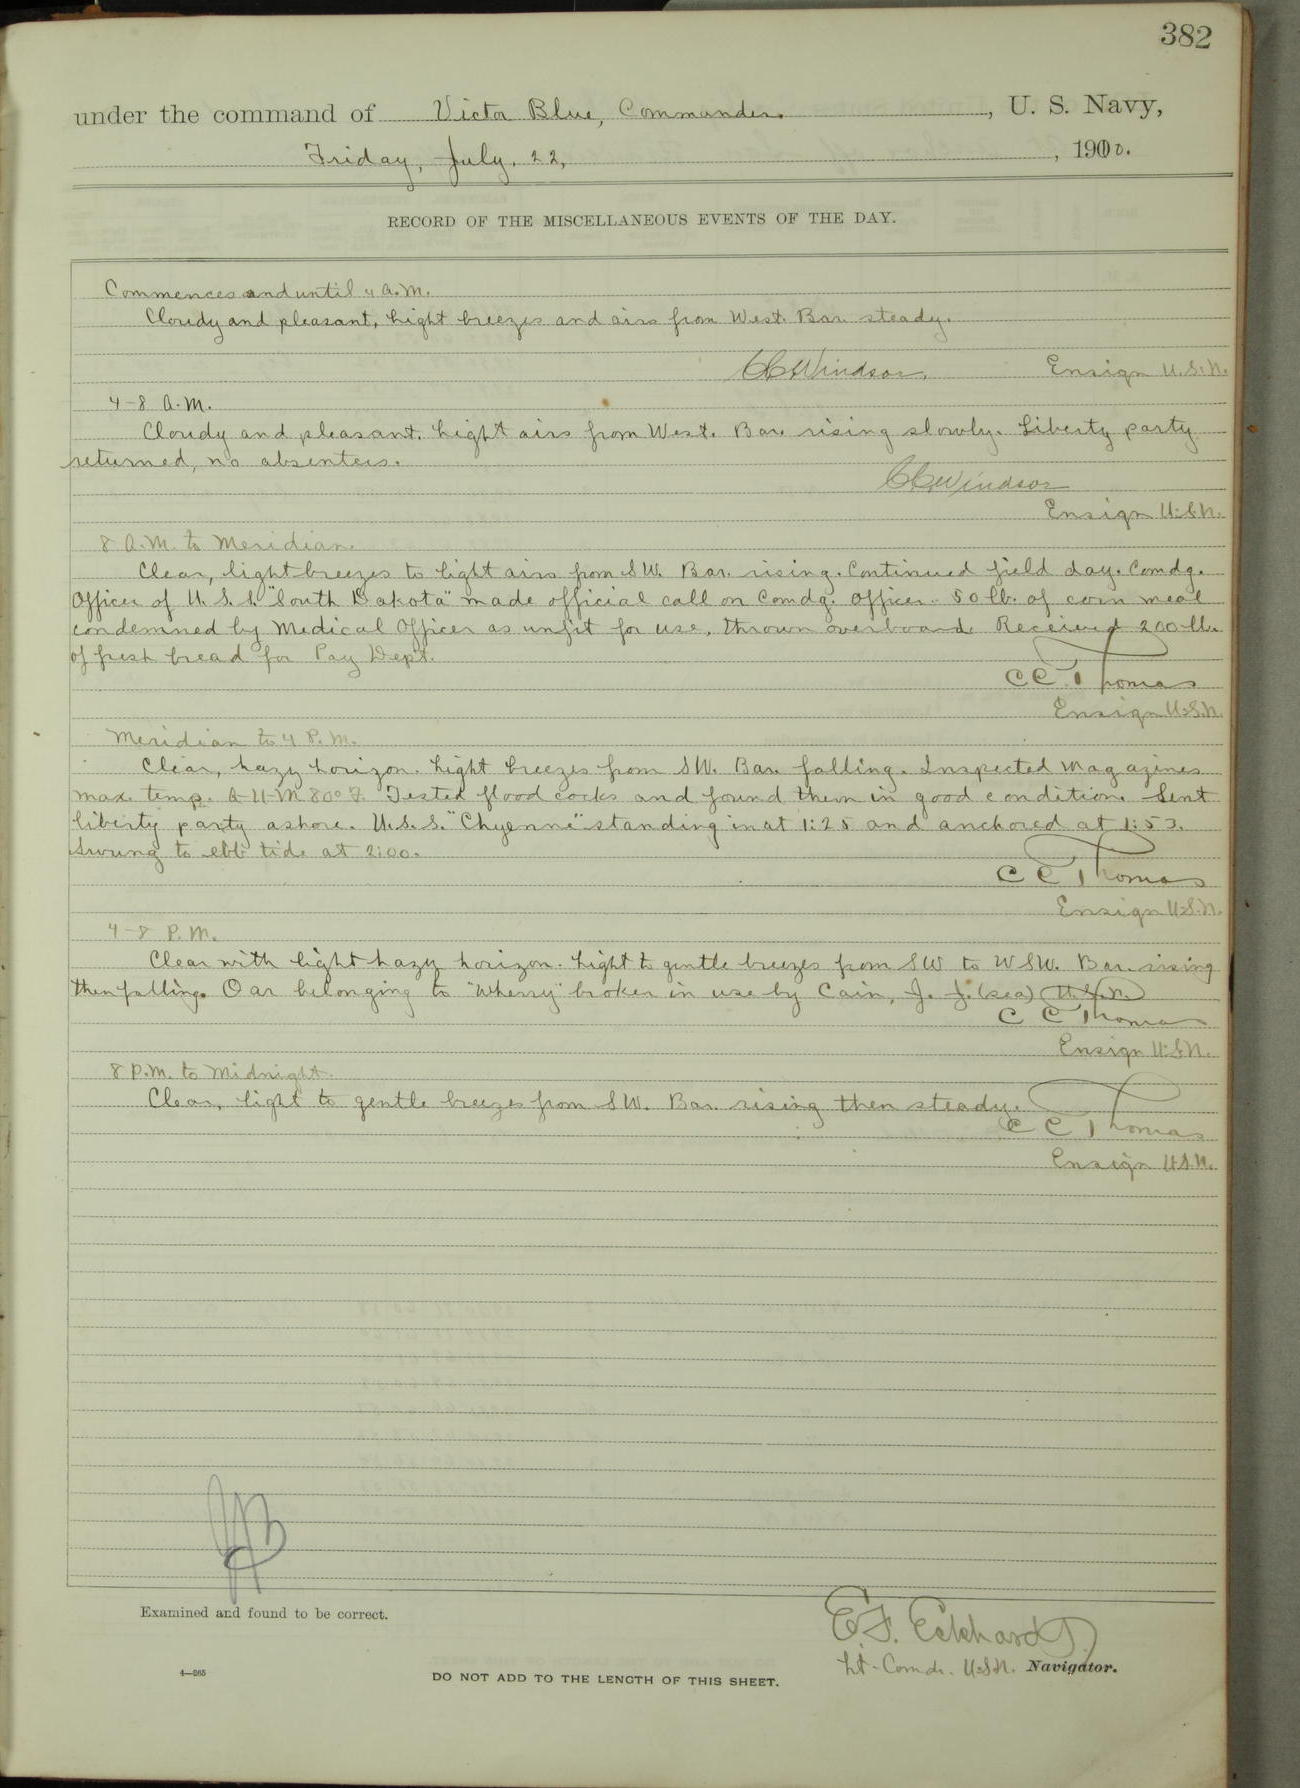 382
under the command of Victor Blue, Commander. , U. S. Navy,
Friday, July. 22, , 1910.
RECORD OF THE MISCELLANEOUS EVENTS OF THE DAY.
Commences and until 4 A.M.
Cloudy and pleasant, Light breezes and airs from West. Bar. steady.
CCWindsor, Ensign U.S.N.
4-8 A.M.
Cloudy and pleasant. Light airs from West. Bar. rising slowly. Liberty party
returned, no absentees.
CCWindsor
Ensign U.S.N.
8 A.M. to Meridian.
Clear, light breezes to light airs from SW. Bar. rising. Continued field day. Comdg.
Officer of U. S. S. "South Dakota" made official call on Comdg. Officer. 50 lb. of corn meal
condemned by Medical Officer as unfit for use, thrown overboard. Received 200 lbs
of fresh bread for Pay Dept.
C C Thomas
Ensign U.S.N.
Meridian to 4 P.M.
Clear, hazy horizon. Light breezes from SW. Bar. falling. Inspected Magazines
max. temp. A-11-M 80° F. Tested flood cocks and found them in good condition. Sent
liberty party ashore. U.S.S. "Cheyenne" standing in at 1:25 and anchored at 1:53.
Swung to ebb tide at 2:00.
C C Thomas
Ensign U.S.N.
4-8 P.M.
Clear with light hazy horizon. Light to gentle breezes from SW to WSW. Bar. rising
then falling. Oar belonging to "Wherry" broken in use by Cain, J. J. (sea) U.S.N.
C C Thomas
Ensign U.S.N.
8 P.M. to Midnight.
Clear, light to gentle breezes from SW. Bar. rising then steady.
C C Thomas
Ensign U.S.N.
Examined and found to be correct.
E.F. Eckhardt
Lt-Comdr. U.S.N. Navigator.
4—265
DO NOT ADD TO THE LENGTH OF THIS SHEET.